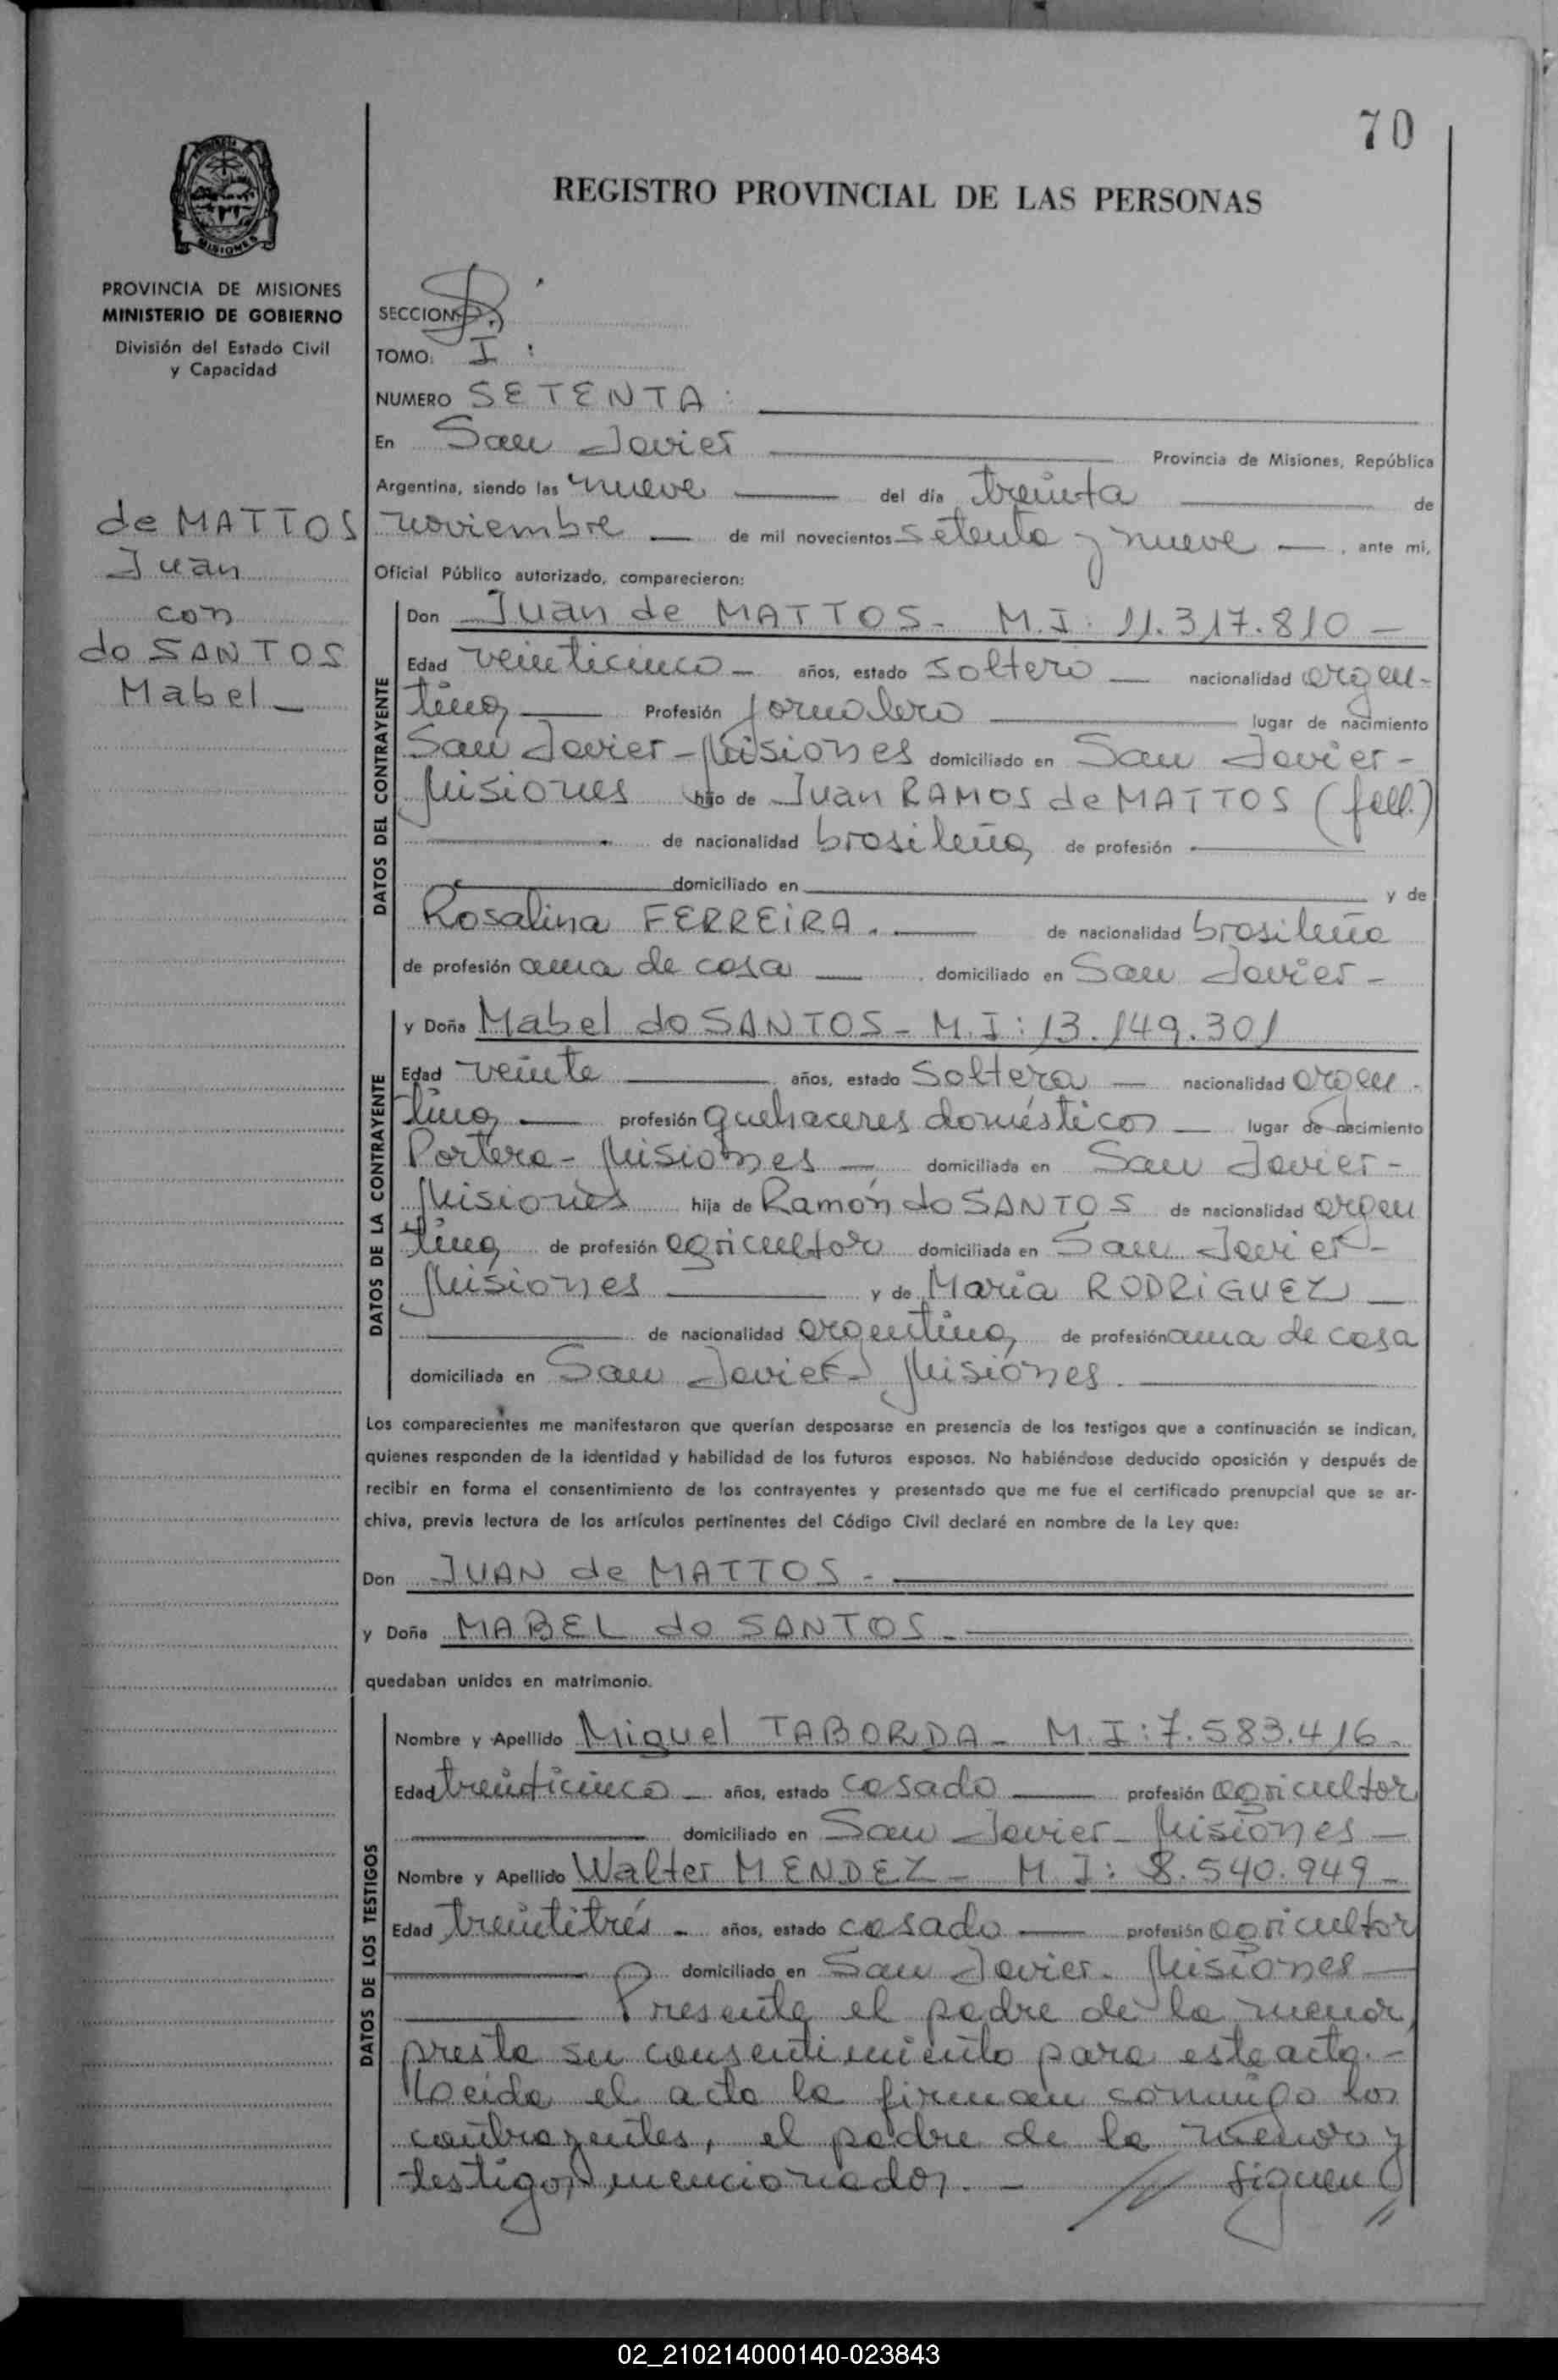 70
REGISTRO PROVINCIAL DE LAS PERSONAS
MISIONES
PROVINCIA DE MISIONES
MINISTERIO DE GOBIERNO
División del Estado Civil
y Capacidad
SECCION
TOMO: I :
NUMERO SETENTA :
En San Javier Provincia de Misiones, República
Argentina, siendo las nueve del día treinta de
noviembre de mil novecientos setenta y nueve , ante mi,
Oficial Público autorizado, comparecieron:
de MATTOS
Juan
con
do SANTOS
Mabel
DATOS DEL CONTRAYENTE
Don Juan de MATTOS - M.I: 11.317.810 -
Edad veinticinco - años, estado soltero nacionalidad argen-
tina Profesión jornalero lugar de nacimiento
San Javier - Misiones domiciliado en San Javier -
Misiones hijo de Juan RAMOS de MATTOS (fall.)
de nacionalidad brasileña de profesión
domiciliado en y de
Rosalina FERREIRA. de nacionalidad brasileña
de profesión ama de casa domiciliado en San Javier -
DATOS DE LA CONTRAYENTE
y Doña Mabel do SANTOS - M.I: 13.149.301
Edad veinte años, estado soltera nacionalidad argen-
tina profesión quehaceres domésticos lugar de nacimiento
Portera - Misiones domiciliada en San Javier -
Misiones hija de Ramón do SANTOS de nacionalidad argen
tina de profesión agricultor domiciliada en San Javier -
Misiones y de María RODRIGUEZ
de nacionalidad argentina de profesión ama de casa
domiciliada en San Javier - Misiones.
Los comparecientes me manifestaron que querían desposarse en presencia de los testigos que a continuación se indican,
quienes responden de la identidad y habilidad de los futuros esposos. No habiéndose deducido oposición y después de
recibir en forma el consentimiento de los contrayentes y presentado que me fue el certificado prenupcial que se ar-
chiva, previa lectura de los artículos pertinentes del Código Civil declaré en nombre de la Ley que:
Don JUAN de MATTOS -
y Doña MABEL do SANTOS -
quedaban unidos en matrimonio.
DATOS DE LOS TESTIGOS
Nombre y Apellido Miguel TABORDA - M.I: 7.583.416 -
Edad treinticinco - años, estado casado profesión agricultor
domiciliado en San Javier - Misiones -
Nombre y Apellido Walter MENDEZ - M.I: 8.540.949 -
Edad treintitrés - años, estado casado profesión agricultor
domiciliado en San Javier - Misiones
Presente el padre de la menor,
presta su consentimiento para este acto. -
Leída el acta la firman conmigo los
contrayentes, el padre de la menor y
testigos mencionados. - // Siguen //
02_210214000140-023843